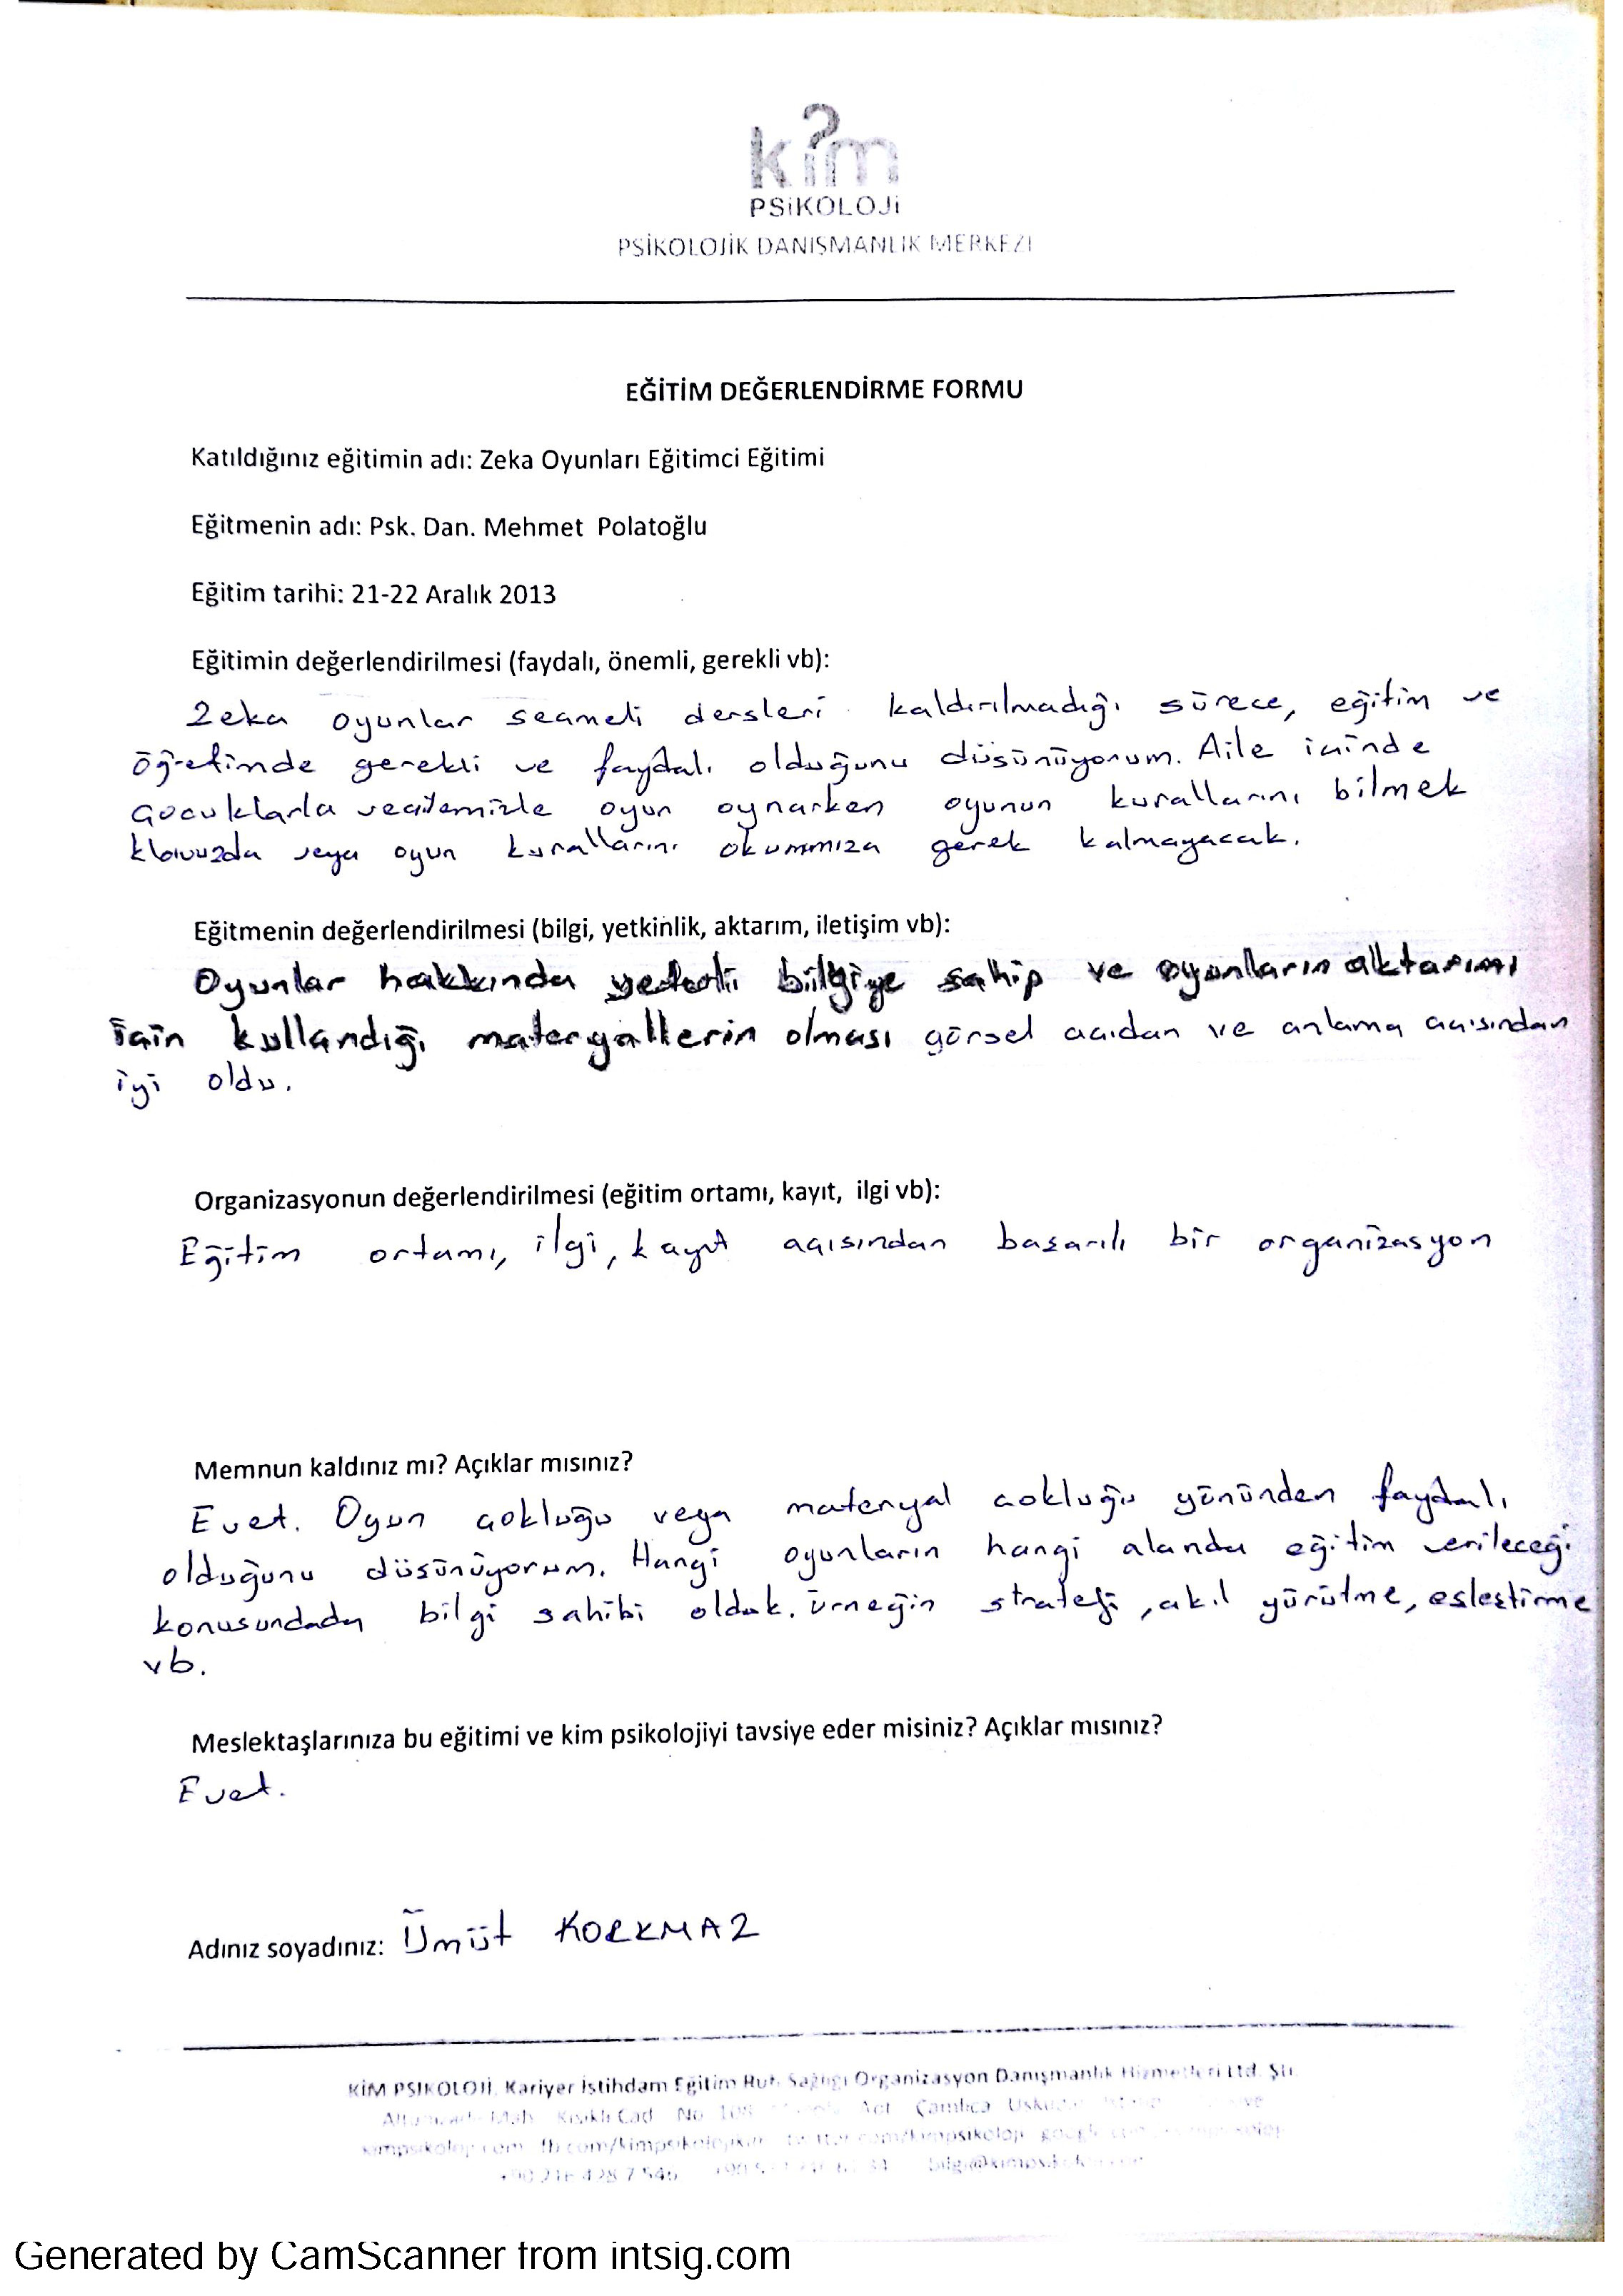 kim
PSiKOLOJi
PSİKOLOJİK DANIŞMANLIK MERKEZİ
EĞİTİM DEĞERLENDİRME FORMU
Katıldığınız eğitimin adı: Zeka Oyunları Eğitimci Eğitimi
Eğitmenin adı: Psk. Dan. Mehmet Polatoğlu
Eğitim tarihi: 21-22 Aralık 2013
Eğitimin değerlendirilmesi (faydalı, önemli, gerekli vb):
Zeka oyunlar seçmeli dersleri kaldırılmadığı sürece, eğitim ve
öğretimde gerekli ve faydalı olduğunu düşünüyorum. Aile içinde
çocuklarla oyun oynarken oyunun kurallarını bilmek
veya oyun kurallarını okummıza gerek kalmayacak.
Eğitmenin değerlendirilmesi (bilgi, yetkinlik, aktarım, iletişim vb):
Oyunlar hakkında yeterli bilgiye sahip ve oyunların aktarımı
için kullandığı materyallerin olması görsel açıdan ve anlama açısından
iyi oldu.
Organizasyonun değerlendirilmesi (eğitim ortamı, kayıt, ilgi vb):
Eğitim ortamı, ilgi, kayıt açısından başarılı bir organizasyon
Memnun kaldınız mı? Açıklar mısınız?
Evet. Oyun çokluğu veya materyal çokluğu yönünden faydalı
olduğunu düşünüyorum. Hangi oyunların hangi alanda eğitim verileceği
konusundada bilgi sahibi olduk. Örneğin strateji, akıl yürütme, eşleştirme
vb.
Meslektaşlarınıza bu eğitimi ve kim psikolojiyi tavsiye eder misiniz? Açıklar mısınız?
Evet.
Adınız soyadınız: Ümüt KORKMAZ
KİM PSİKOLOJİ Kariyer İstihdam Eğitim Ruh Sağlığı Organizasyon Danışmanlık Hizmetleri Ltd. Şti.
Mah Kısıklı Cad No Apt Çamlıca
Generated by CamScanner from intsig.com